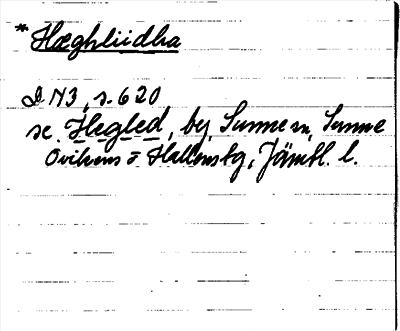 *Hæghliidha
DN3, s. 620
se. Hegled, by, Sunne sn, Sunne
Ovikens o Hallens tg, Jämtl. l.